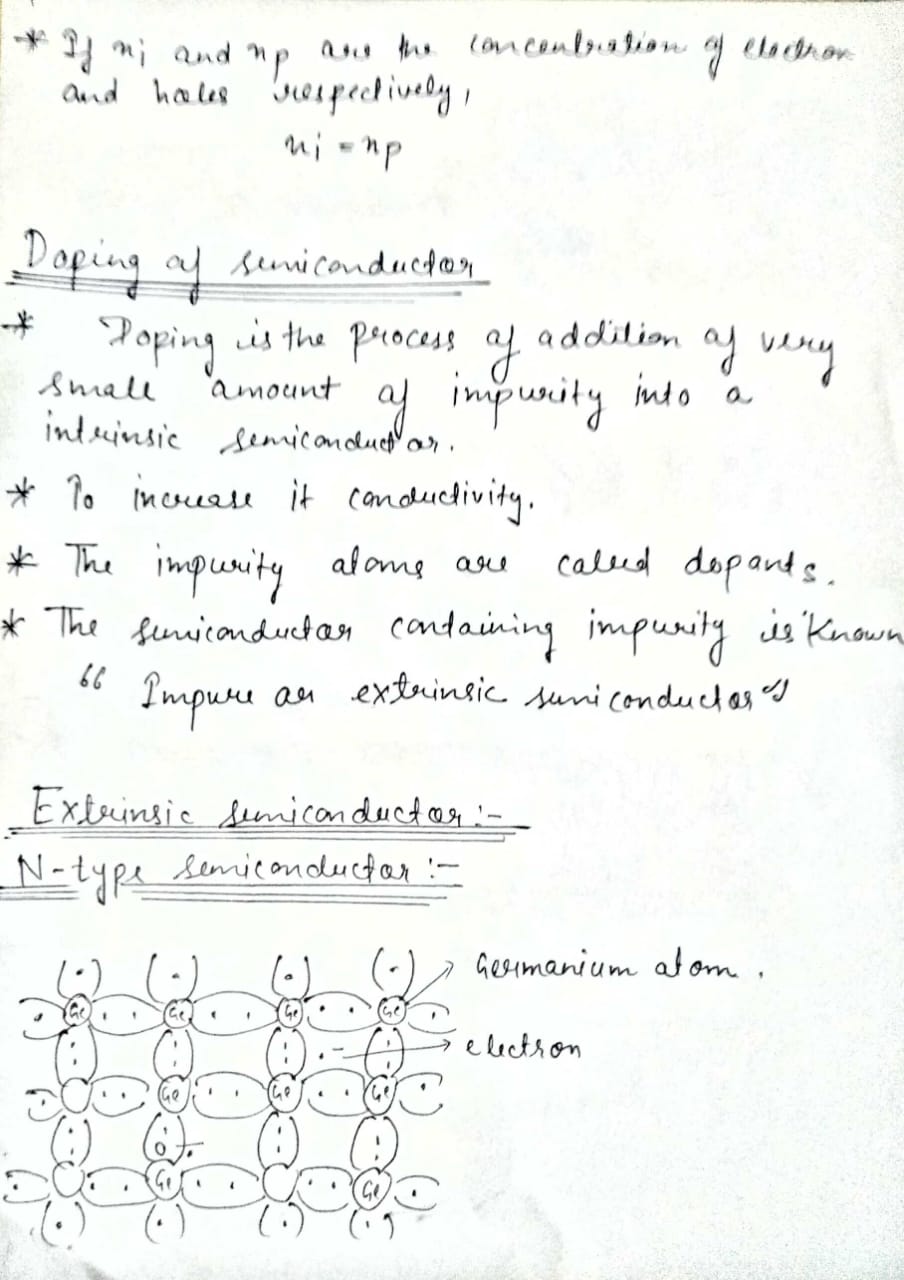 * If ni and np are the concentration of electron
and holes respectively,
ni = np
Doping of semiconductor
* Doping is the process of addition of very
small amount of impurity into a
intrinsic semiconductor.
* To increase it conductivity.
* The impurity atoms are called dopants.
* The semiconductor containing impurity is Known
“ Impure or extrinsic semiconductor ”
Extrinsic semiconductor :-
N-type semiconductor :-
Germanium atom .
Ge Ge Ge Ge
electron
Ge Ge Ge
Ge Ge